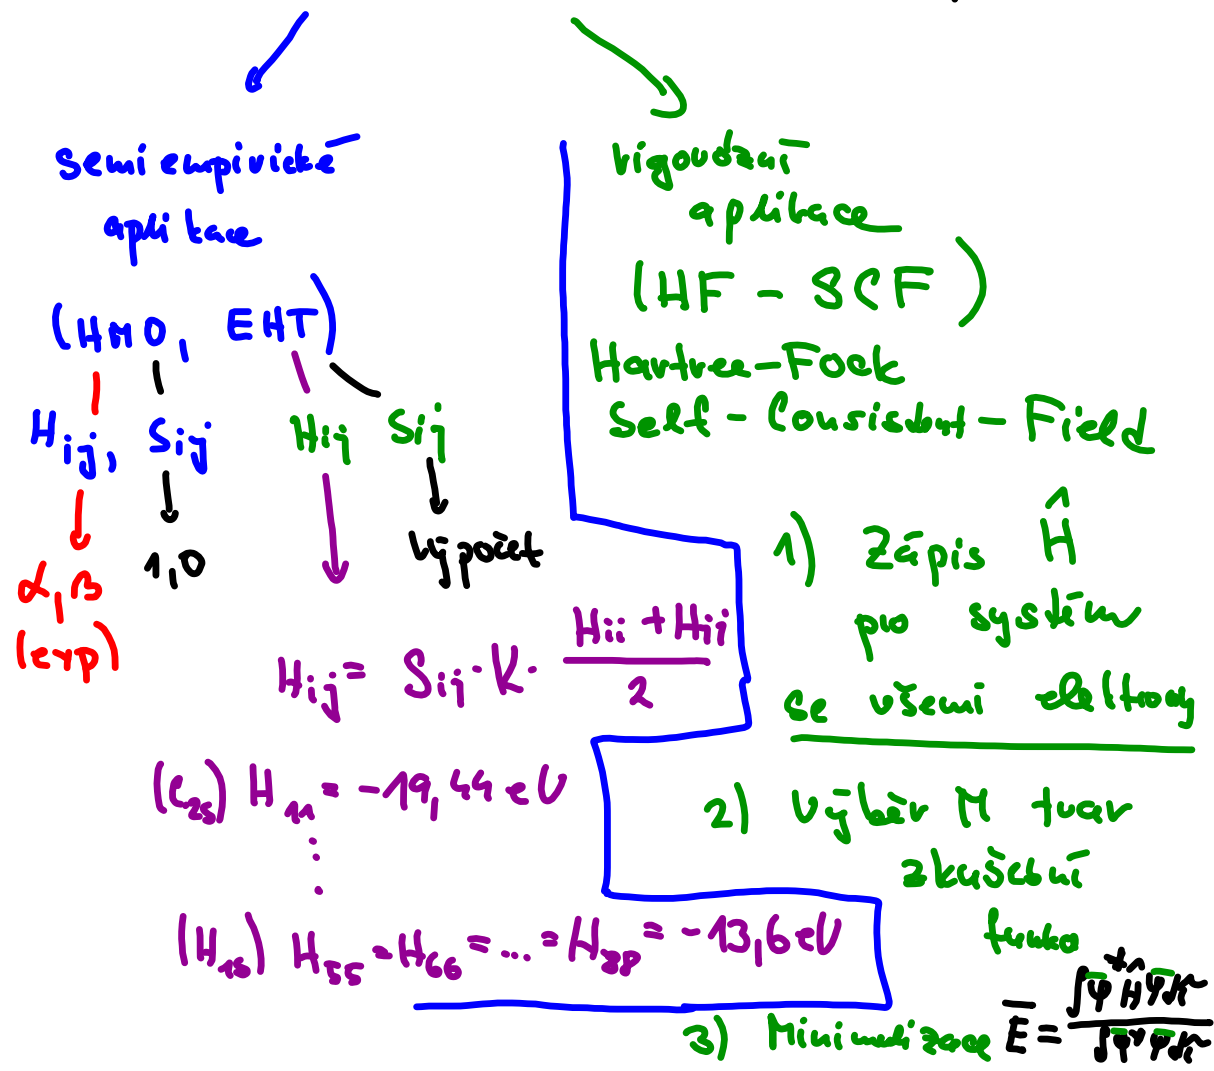 semiempirické
aplikace
(HMO, EHT)
Hij, Sij Hij Sij
α, β
(exp)
1,0
výpočet
Hij = Sij · K · (Hii + Hjj) / 2
(C2s) H11 = -19,44 eV
⋮
(H1s) H55 = H66 = ... = H88 = -13,6 eV
aplikace
(HF - SCF)
Hartree-Fock
Self-Consistent-Field
1) Zápis Ĥ
pro systém
se všemi elektrony
2) Výběr M tvar
zkušební
funkce
3) Minimalizace Ē = ∫φ̄* Ĥ φ̄ dτ / ∫φ̄* φ̄ dτ